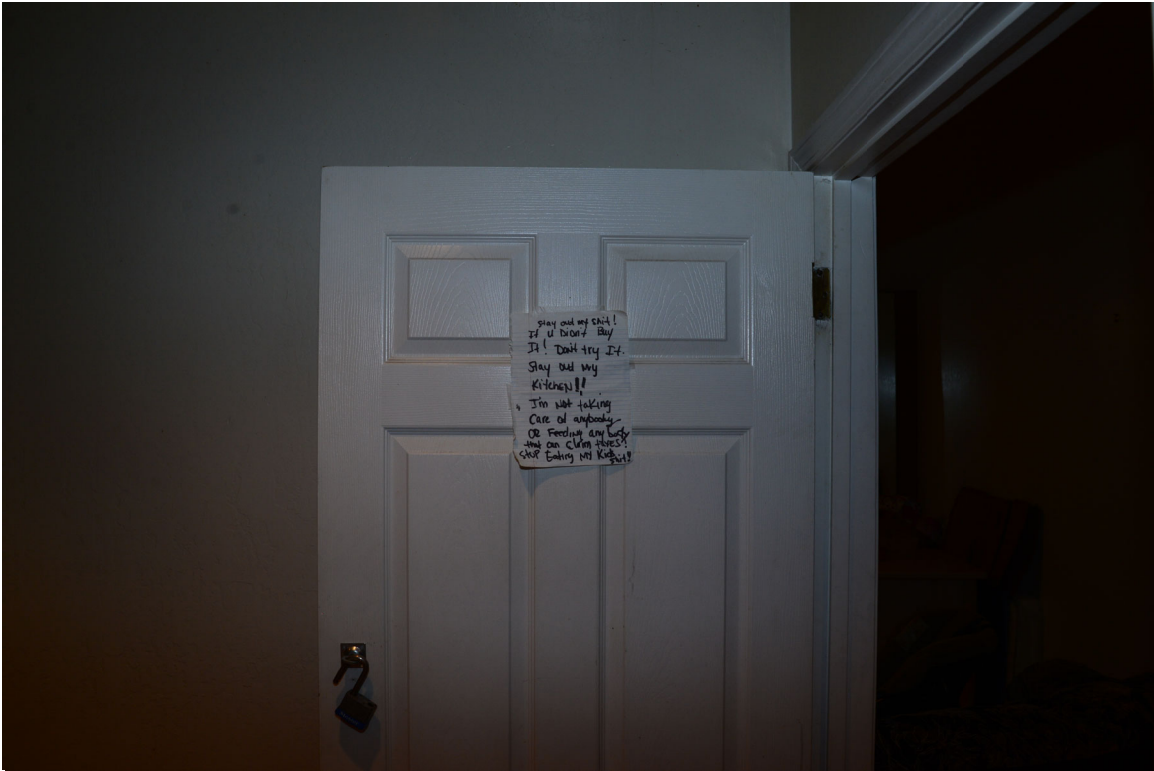 Stay out my shit!
If U Didn't Buy
It! Don't try It.
Stay out my
Kitchen!!
I'm Not taking
Care of anybody
OR Feeding any body
that can claim taxes!
STOP Eating My Kids
shit!